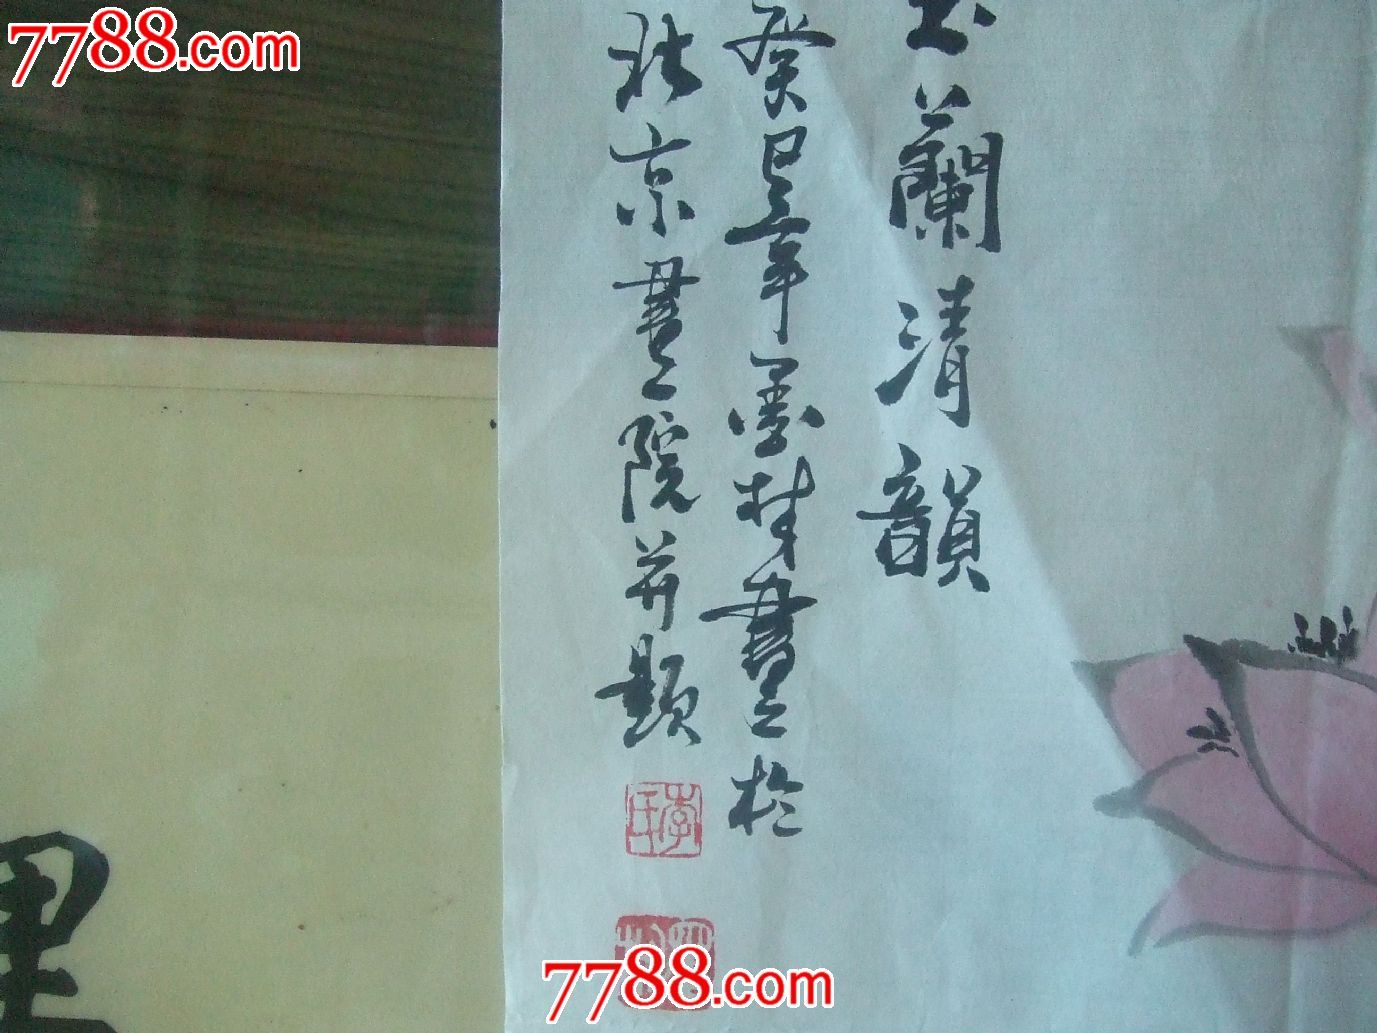 7788.com
玉蘭清韻
癸巳年墨林畫於
北京畫院并題
7788.com